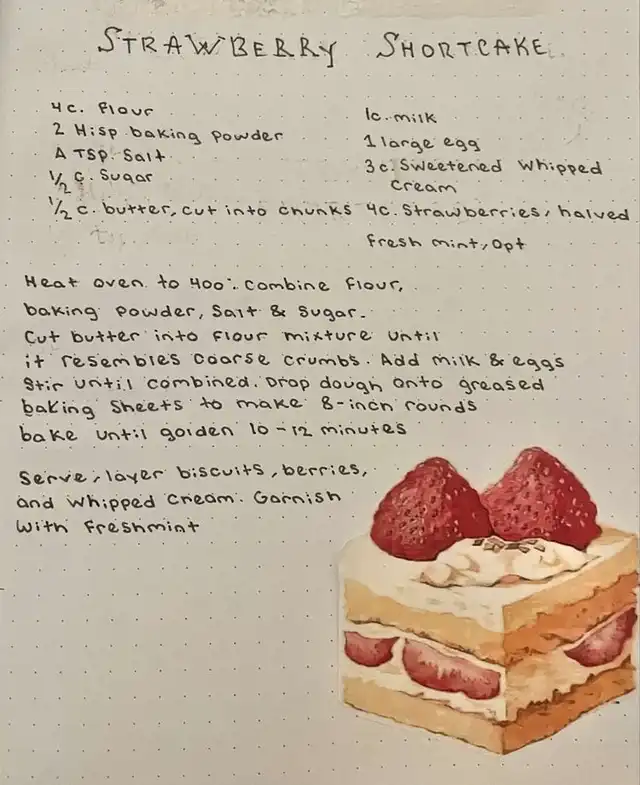 STRAWBERRY SHORTCAKE
4c. Flour
2 Hisp baking powder
A TSP. Salt
1/2 c. Sugar
1/2 c. butter, cut into chunks
1c. milk
1 large egg
3 c. Sweetened Whipped
Cream
4c. Strawberries, halved
Fresh mint, opt
Heat oven to 400°. Combine Flour,
baking powder, Salt & Sugar.
Cut butter into Flour mixture until
it resembles coarse crumbs. Add milk & eggs
Stir until combined. Drop dough onto greased
baking Sheets to make 8-inch rounds
bake until golden 10-12 minutes
Serve, layer biscuits, berries,
and whipped cream. Garnish
with Freshmint